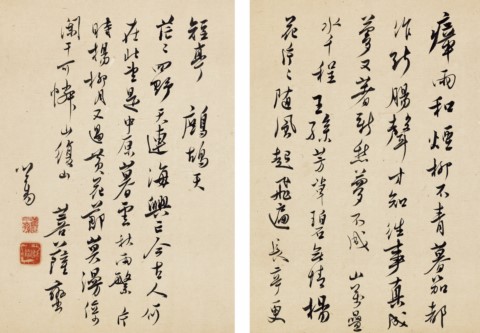 瘴雨和煙柳不青暮笳都
作斷腸聲才知往事真成
夢又著新愁夢不成 山萬疊
水千程 王孫芳草碧無情楊
花片片隨風起飛遍長亭更
短亭 鷓鴣天
茫茫四野天連海興亡今古人何
在此是中原暮雲秋雨繁片
時楊柳月又過黃花節莫漫倚
闌干可憐山復山 菩薩蠻
心畬